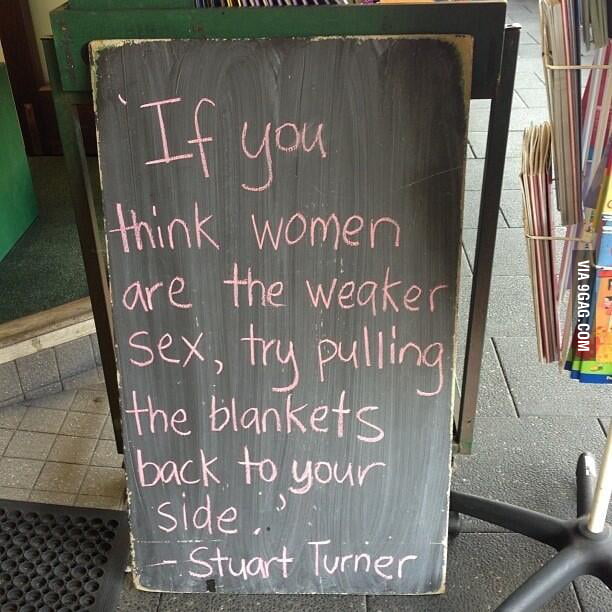 'If you
think women
are the weaker
sex, try pulling
the blankets
back to your
side.'
- Stuart Turner
VIA 9GAG.COM